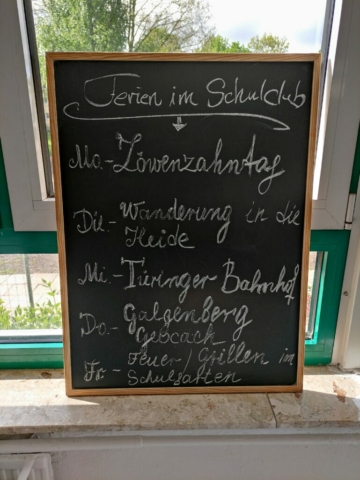 Ferien im Schulclub
Mo.- Löwenzahntag
Die.- Wanderung in die
Heide
Mi.- Türinger Bahnhof
Do.- Galgenberg
Geocach
Fr. - Feuer/Grillen im
Schulgarten